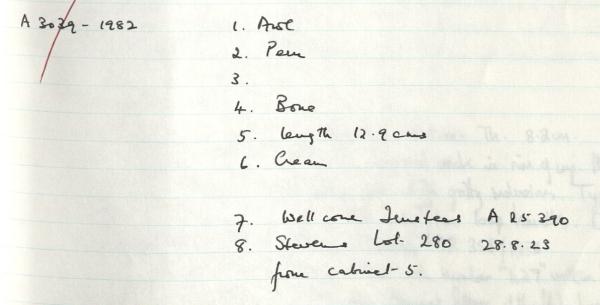 A 3039 - 1982
1. Awl
2. Peru
3.
4. Bone
5. length 12.9 cms
6. Cream
7. Wellcome Trustees A 25390
8. Stevens Lot. 280 28.8.23
from cabinet - 5.